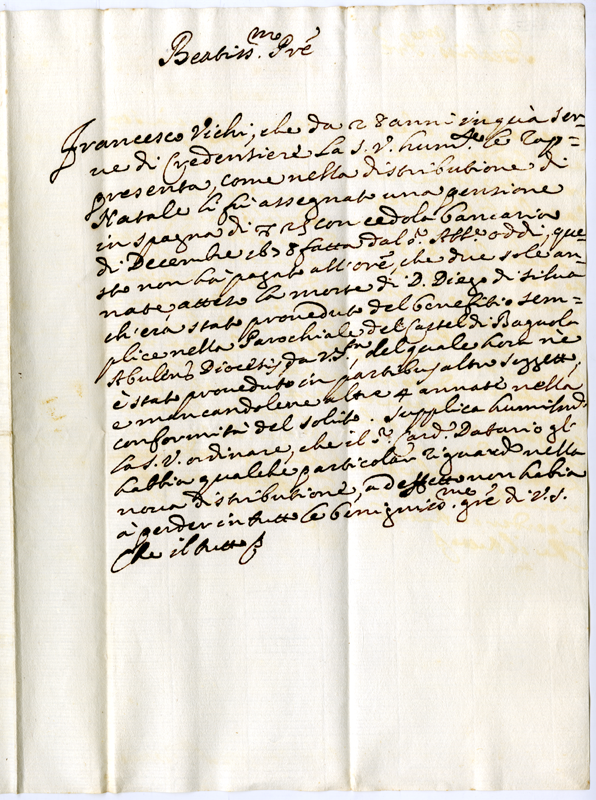 Beatiss.mo Prē
Francesco Vichi, che da 28 anni in quà ser=
ue di Credentiere La S. V. hum.te le rap=
presenta, come nella distributione di
Natale li fù assegnato una pensione
in spagna di 25 con cedola bancaria
di Decembre 1678 fatta dal S. Abb.e oddi, que=
sto non hà pagato all'orē, che due sole an=
nate, atteso la morte di D. Diego di silua
ch'era stato proueduto del benefitio sem=
plice nella Parochiale del Castel di
Abulens Diocesis da V. S.tà, del quale hora nè
è stato proueduto in partibus altro soggetto,
e mancandolene altre 4 annate nella
conformità del solito. supplica humilmd.
La S. V. ordinare, che il S. Card. Datario gli
habbia qualche particolar riguardo nella
noua distributione, ad effetto non habia
à perder in tutto le benigniss.me grē di V. S.
Che il tutto